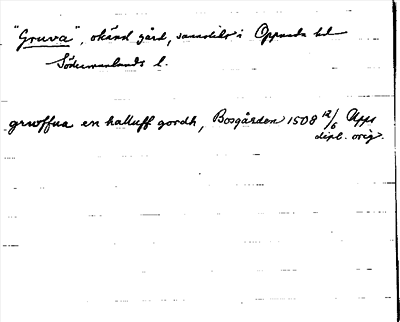 "Gruva", okänd gård, sannolikt i Oppunda hd
Södermanlands l.
gruoffua en halluff gordh, Bosgården 1508 12/6 Upps
dipl. orig.